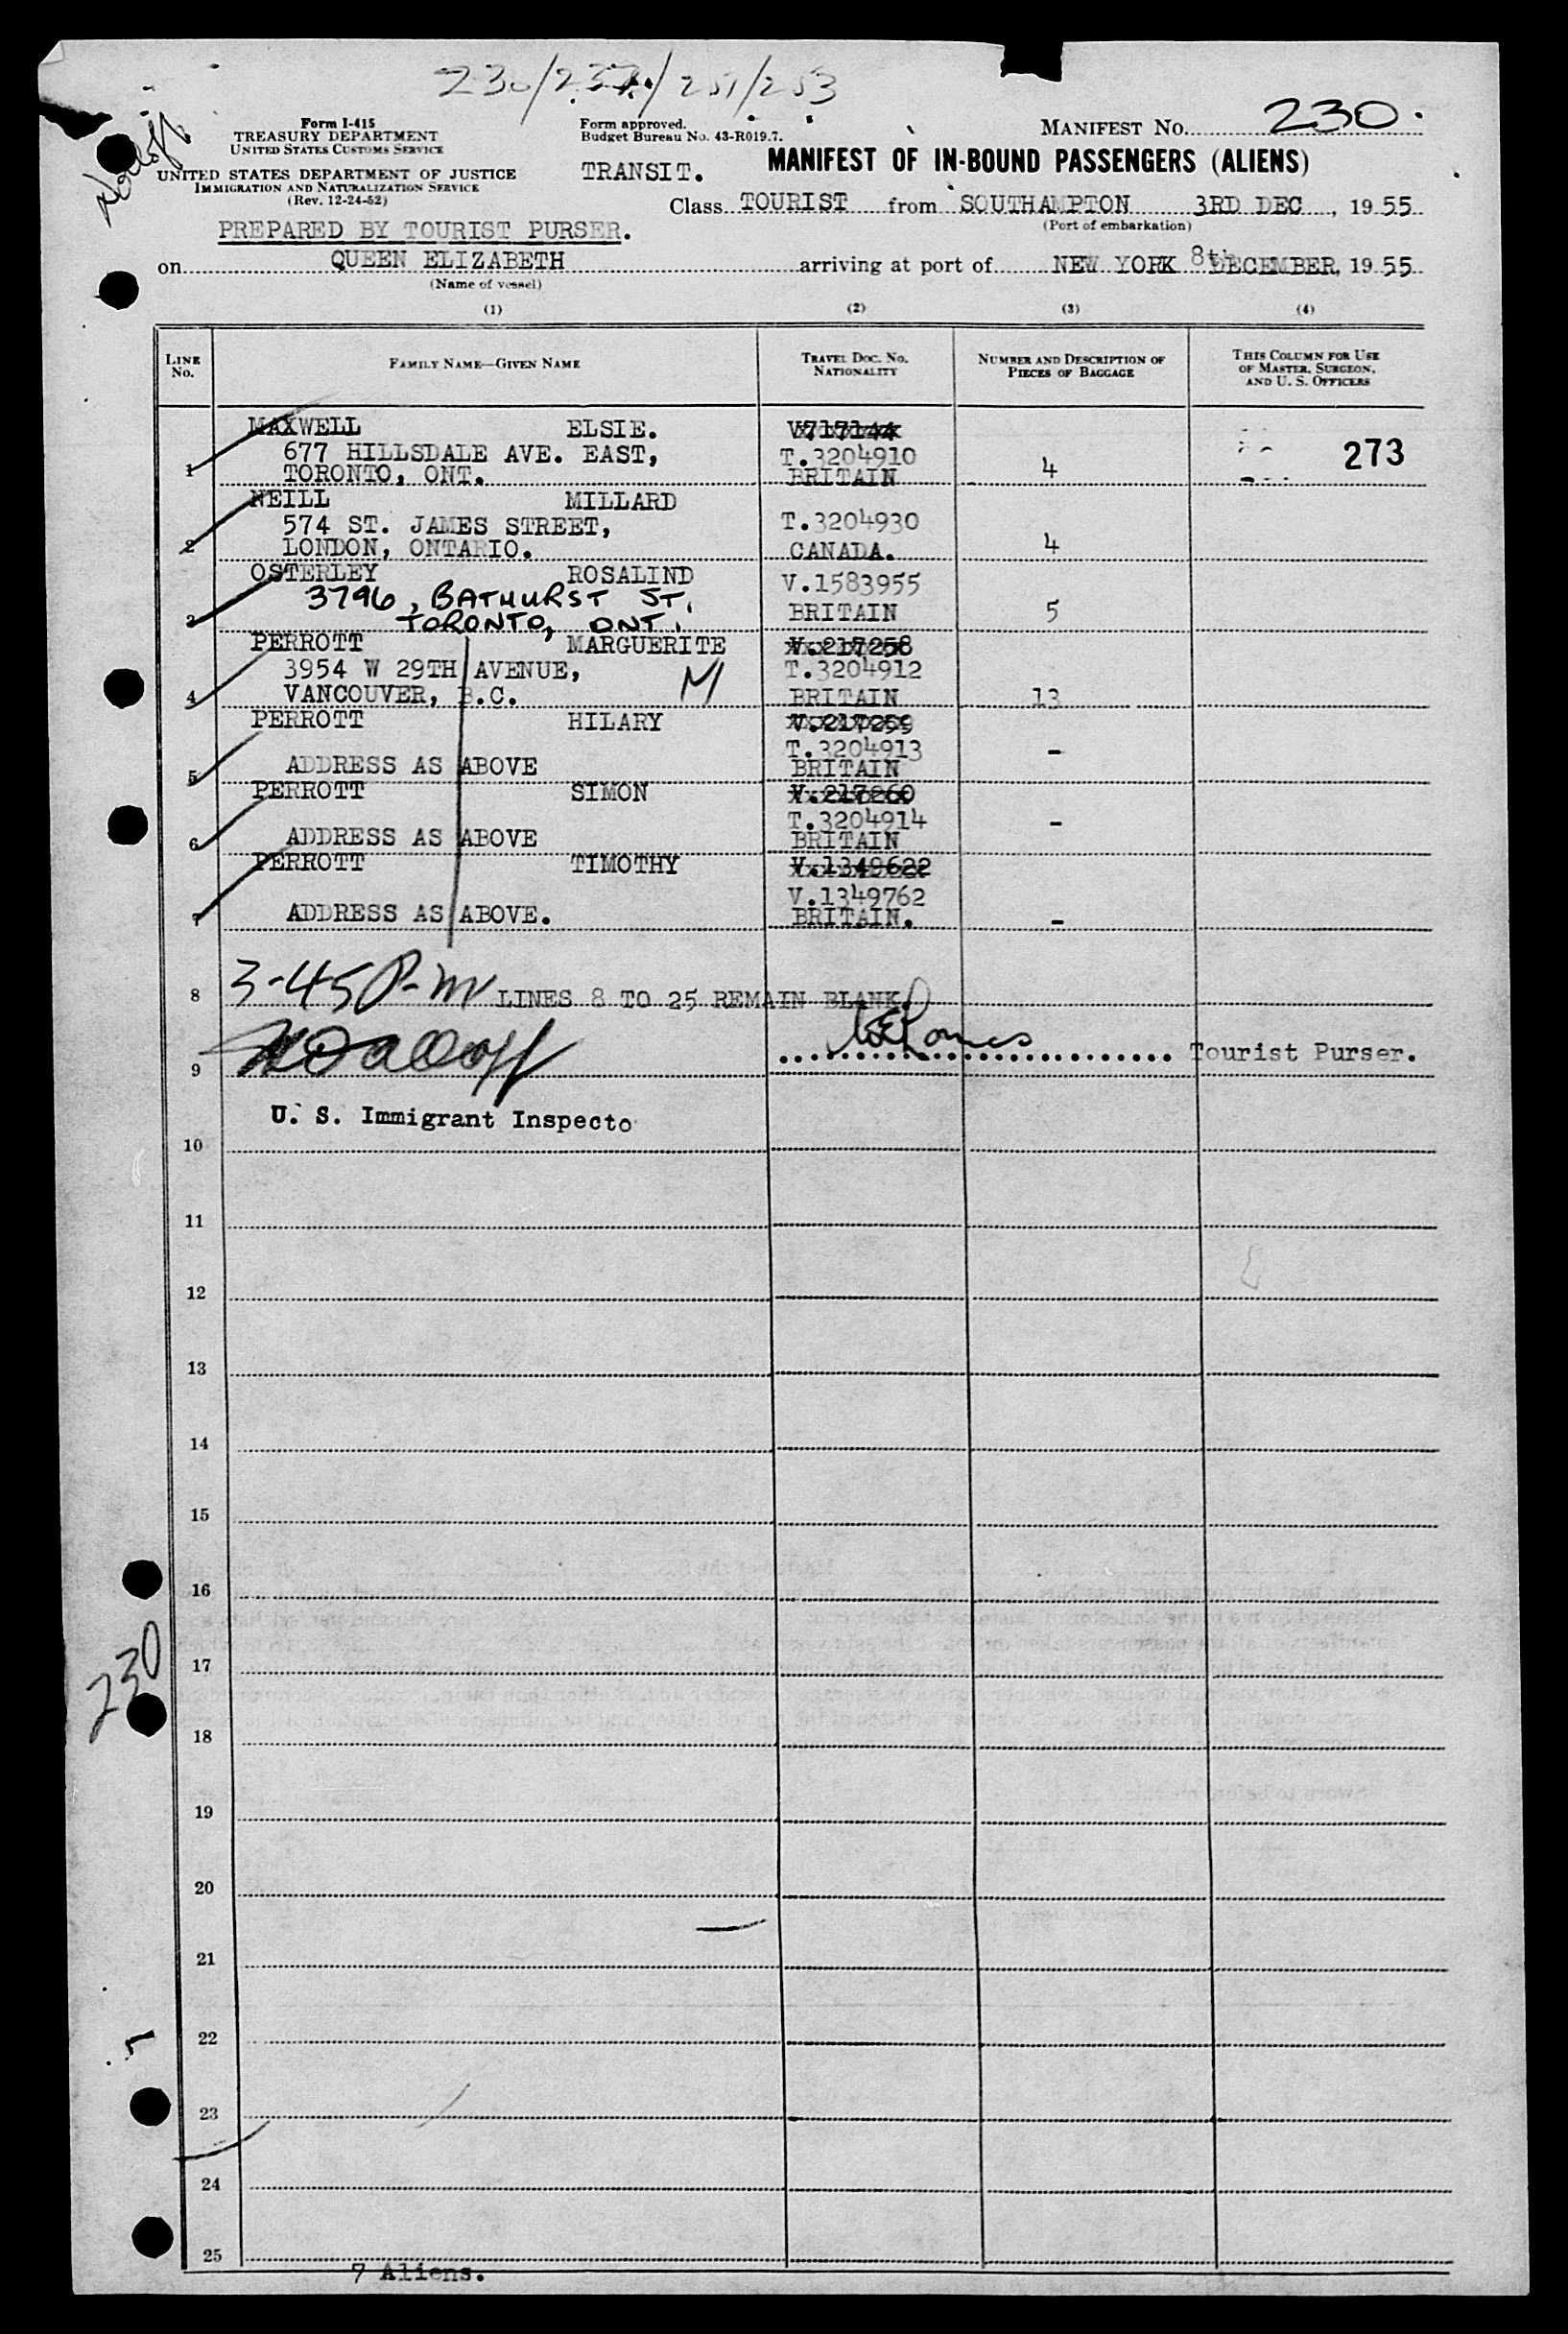 230/237/251/253
Form I-415
TREASURY DEPARTMENT
UNITED STATES CUSTOMS SERVICE
UNITED STATES DEPARTMENT OF JUSTICE
IMMIGRATION AND NATURALIZATION SERVICE
(Rev. 12-24-52)
PREPARED BY TOURIST PURSER.
Form approved.
Budget Bureau No. 43-R019.7.
TRANSIT.
MANIFEST No. 230.
MANIFEST OF IN-BOUND PASSENGERS (ALIENS)
Class TOURIST from SOUTHAMPTON 3RD DEC, 1955
(Port of embarkation)
on QUEEN ELIZABETH arriving at port of NEW YORK 8th DECEMBER, 1955
(Name of vessel)
(1) (2) (3) (4)
LINE No. FAMILY NAME—GIVEN NAME TRAVEL DOC. No. NATIONALITY NUMBER AND DESCRIPTION OF PIECES OF BAGGAGE THIS COLUMN FOR USE OF MASTER, SURGEON, AND U. S. OFFICERS
MAXWELL ELSIE. V717144
677 HILLSDALE AVE. EAST, T.3204910 273
1 TORONTO, ONT. BRITAIN 4
NEILL MILLARD
574 ST. JAMES STREET, T.3204930
2 LONDON, ONTARIO. CANADA. 4
OSTERLEY ROSALIND V.1583955
3796, BATHURST ST, BRITAIN 5
3 TORONTO, ONT.
PERROTT MARGUERITE V.217258
3954 W 29TH AVENUE, M T.3204912
4 VANCOUVER, B.C. BRITAIN 13
PERROTT HILARY V.217259
T.3204913 -
5 ADDRESS AS ABOVE BRITAIN
PERROTT SIMON V.217260
T.3204914 -
6 ADDRESS AS ABOVE BRITAIN
PERROTT TIMOTHY V.1349622
V.1349762
7 ADDRESS AS ABOVE. BRITAIN. -
8 3-45 P-m LINES 8 TO 25 REMAIN BLANK.
9 Tourist Purser.
U. S. Immigrant Inspecto
10
11
12
13
14
15
16
230
17
18
19
20
21
22
23
24
25
7 Aliens.